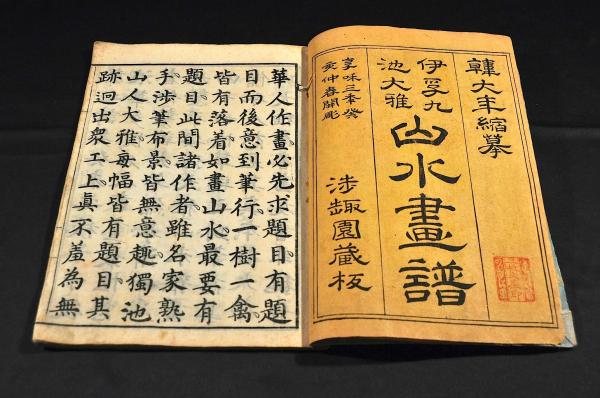 韓大年縮摹
伊孚九
池大雅
山水畫譜
享咊三季癸
亥仲春開彫
涉趣園藏板
華人作畫必先求題目有題
目而後意到筆行一樹一禽
皆有落着如畫山水最要有
題目此間諸作者雖名家熟
手涉筆布景皆無意趣獨池
山人大雅每幅皆有題目其
跡迥出衆工上眞不羞為無